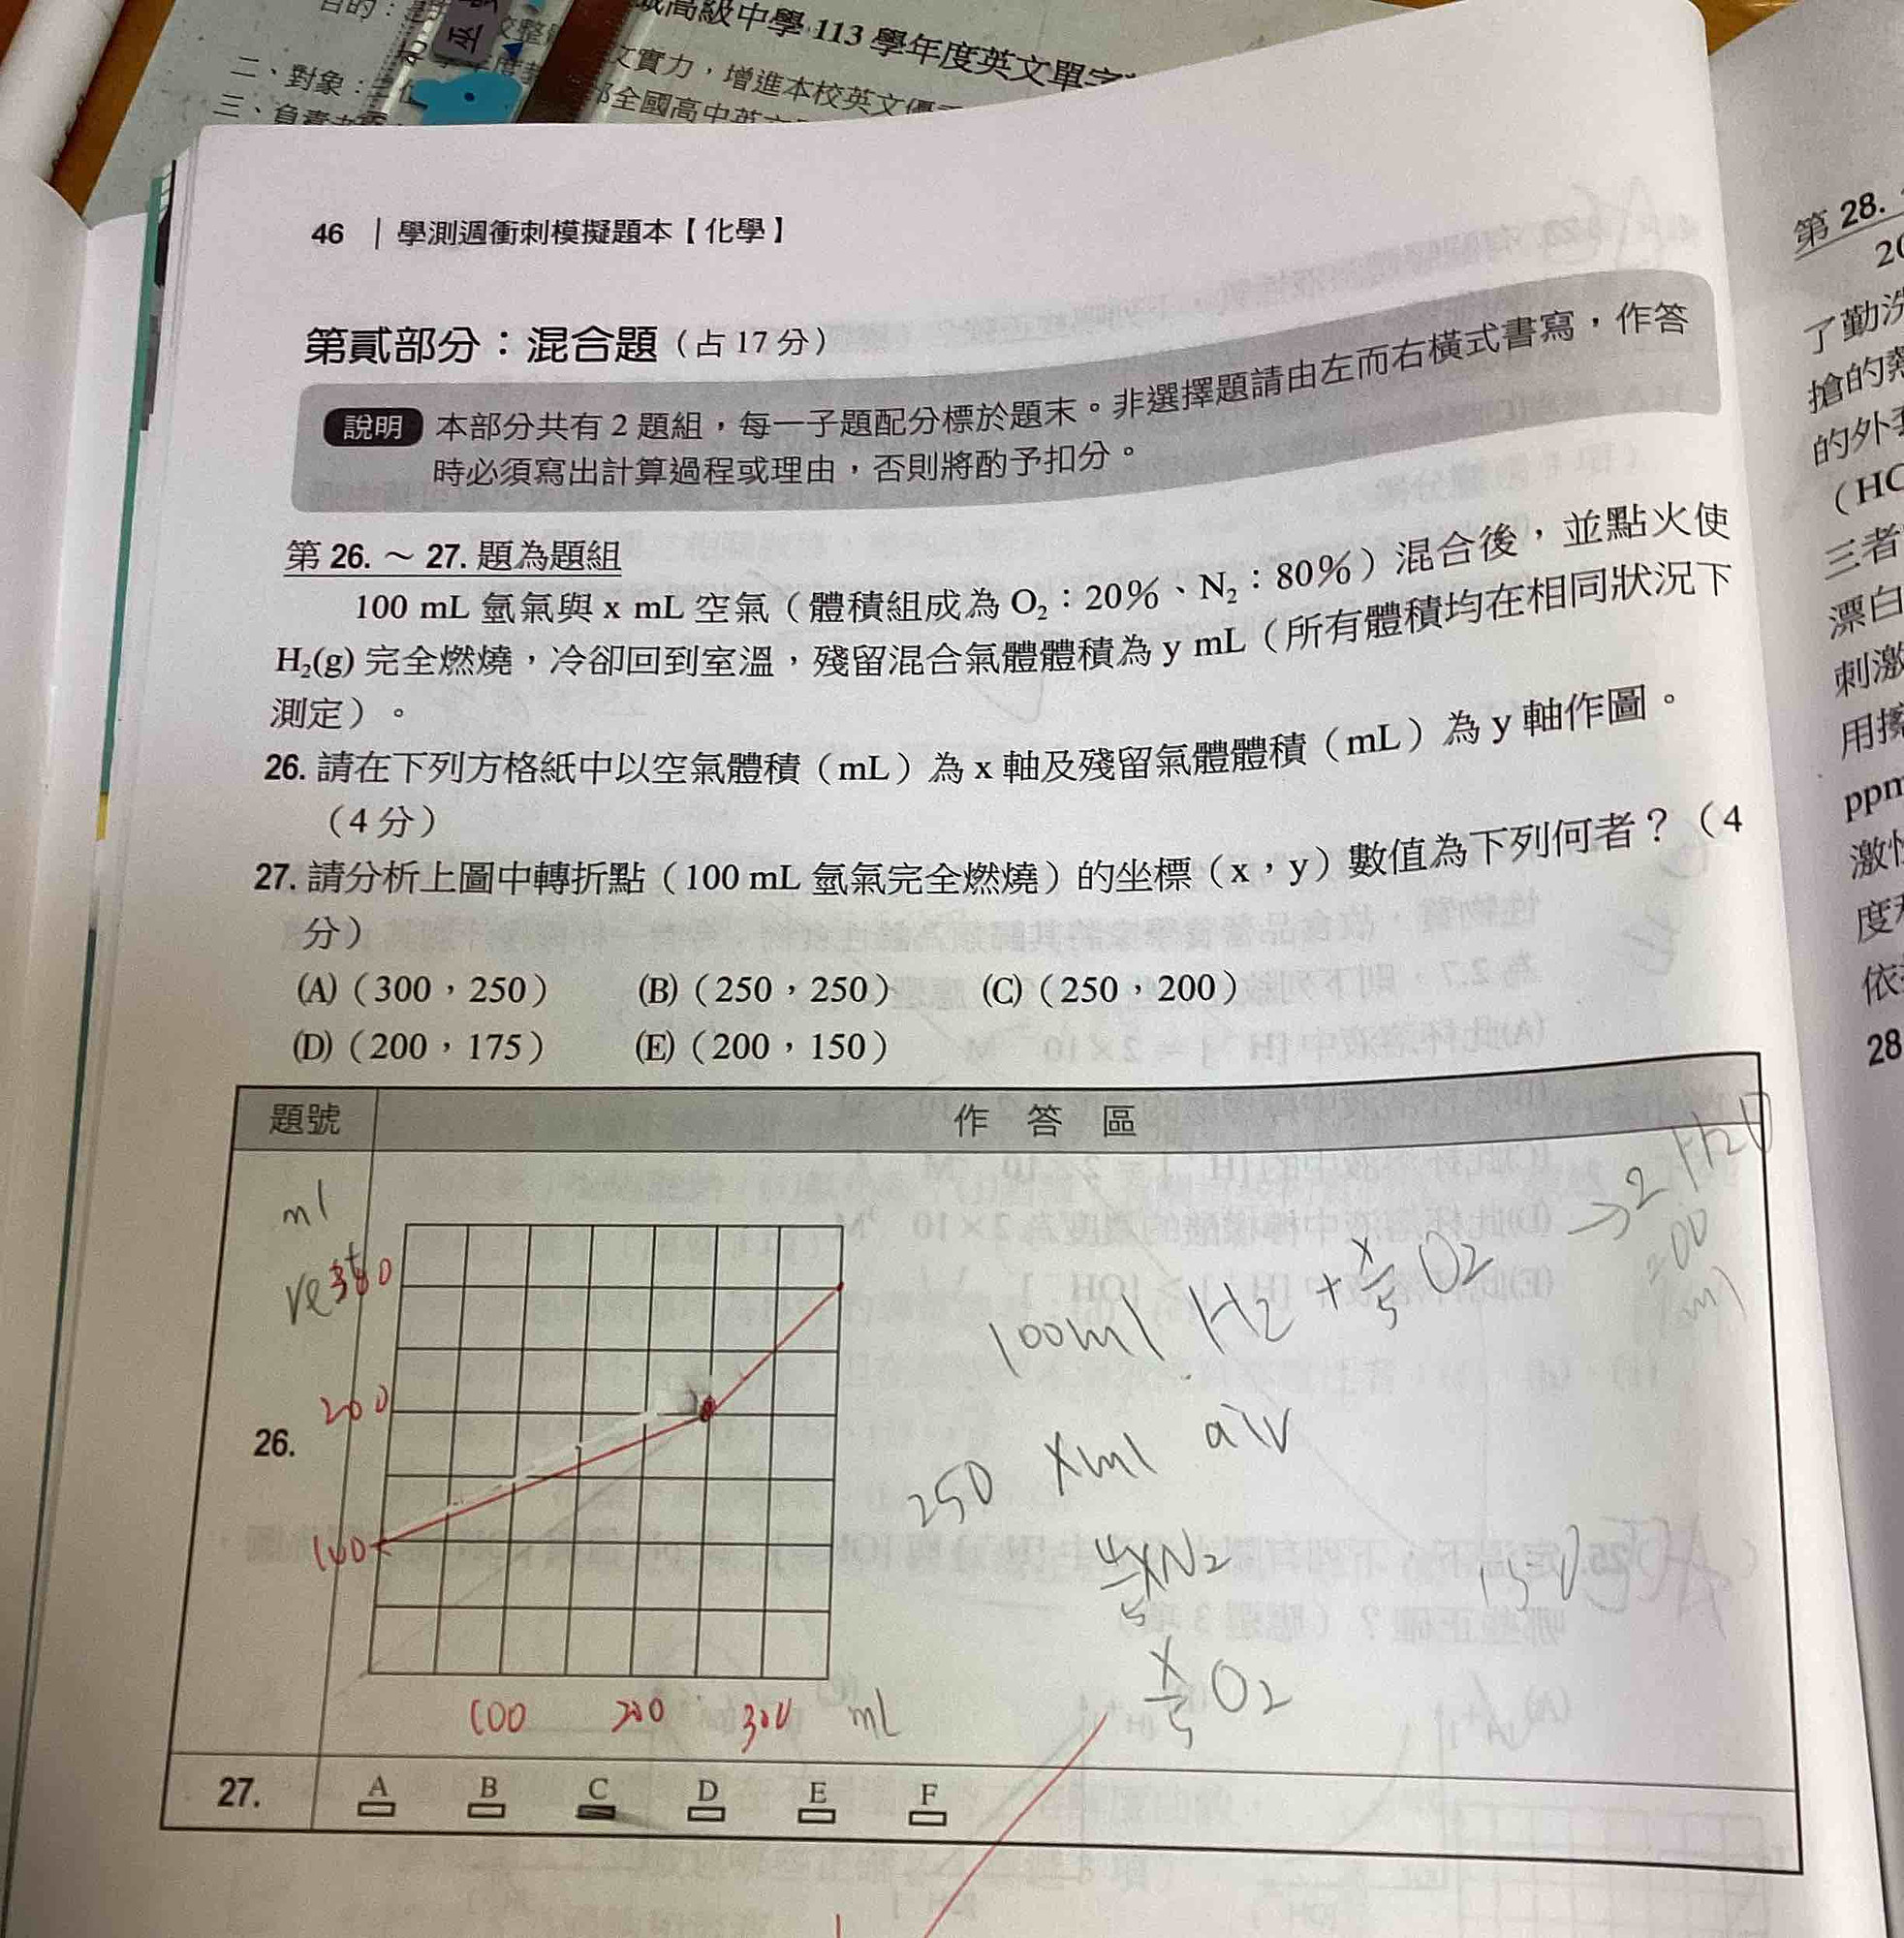 目的：
二、對象：
三、負責
高級中學 113 學年度英文單字
文實力，增進本校英文優
全國高中英文
46 ｜學測週衝刺模擬題本【化學】
第貳部分：混合題（占 17 分）
說明 本部分共有 2 題組，每一子題配分標於題末。非選擇題請由左而右橫式書寫，作答
時必須寫出計算過程或理由，否則將酌予扣分。
第 26. ～ 27. 題為題組
100 mL 氫氣與 x mL 空氣（體積組成為 O₂：20％、N₂：80％）混合後，並點火使
H₂(g) 完全燃燒，冷卻回到室溫，殘留混合氣體體積為 y mL（所有體積均在相同狀況下
測定）。
26. 請在下列方格紙中以空氣體積（mL）為 x 軸及殘留氣體體積（mL）為 y 軸作圖。
（4 分）
27. 請分析上圖中轉折點（100 mL 氫氣完全燃燒）的坐標（x，y）數值為下列何者？（4
分）
(A)（300，250） (B)（250，250） (C)（250，200）
(D)（200，175） (E)（200，150）
題號 作 答 區
26.
ml
300
200
100
100 200 300 ml
100ml H2 + x/5 O2 → 2 H2O
200
ml
250 xml air
4/5 x N2
x/5 O2
150
27. A B C D E F
第 28.
20
了勤洗
搶的
的外
（HC
三者
漂白
刺激
用擦
ppm
激性
度
依
28